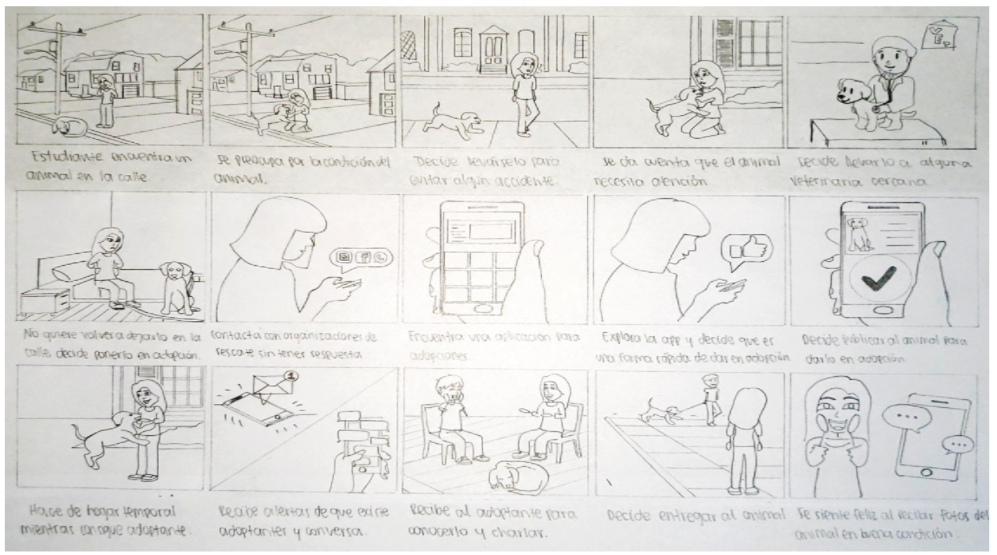 Estudiante encuentra un
animal en la calle
se preocupa por la condición del
animal.
Decide llevárselo para
evitar algún accidente.
se da cuenta que el animal
necesita atención
Decide llevarlo a alguna
veterinaria cercana
No quiere volver a dejarlo en la
calle decide ponerlo en adopción.
contacta con organizaciones de
rescate sin tener respuesta
Encuentra una aplicación para
adopciones
Explora la app y decide que es
una forma rápida de dar en adopción
Decide publicar al animal para
darlo en adopción.
Hace de hogar temporal
mientras consigue adoptante.
Recibe alertas de que existe
adoptantes y conversa.
Recibe al adoptante para
conocerlo y charlar.
Decide entregar al animal
Se siente feliz al recibir fotos del
animal en buena condición.
1